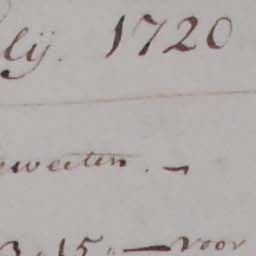 lij. 1720
eweeten. —
3.15.— voor